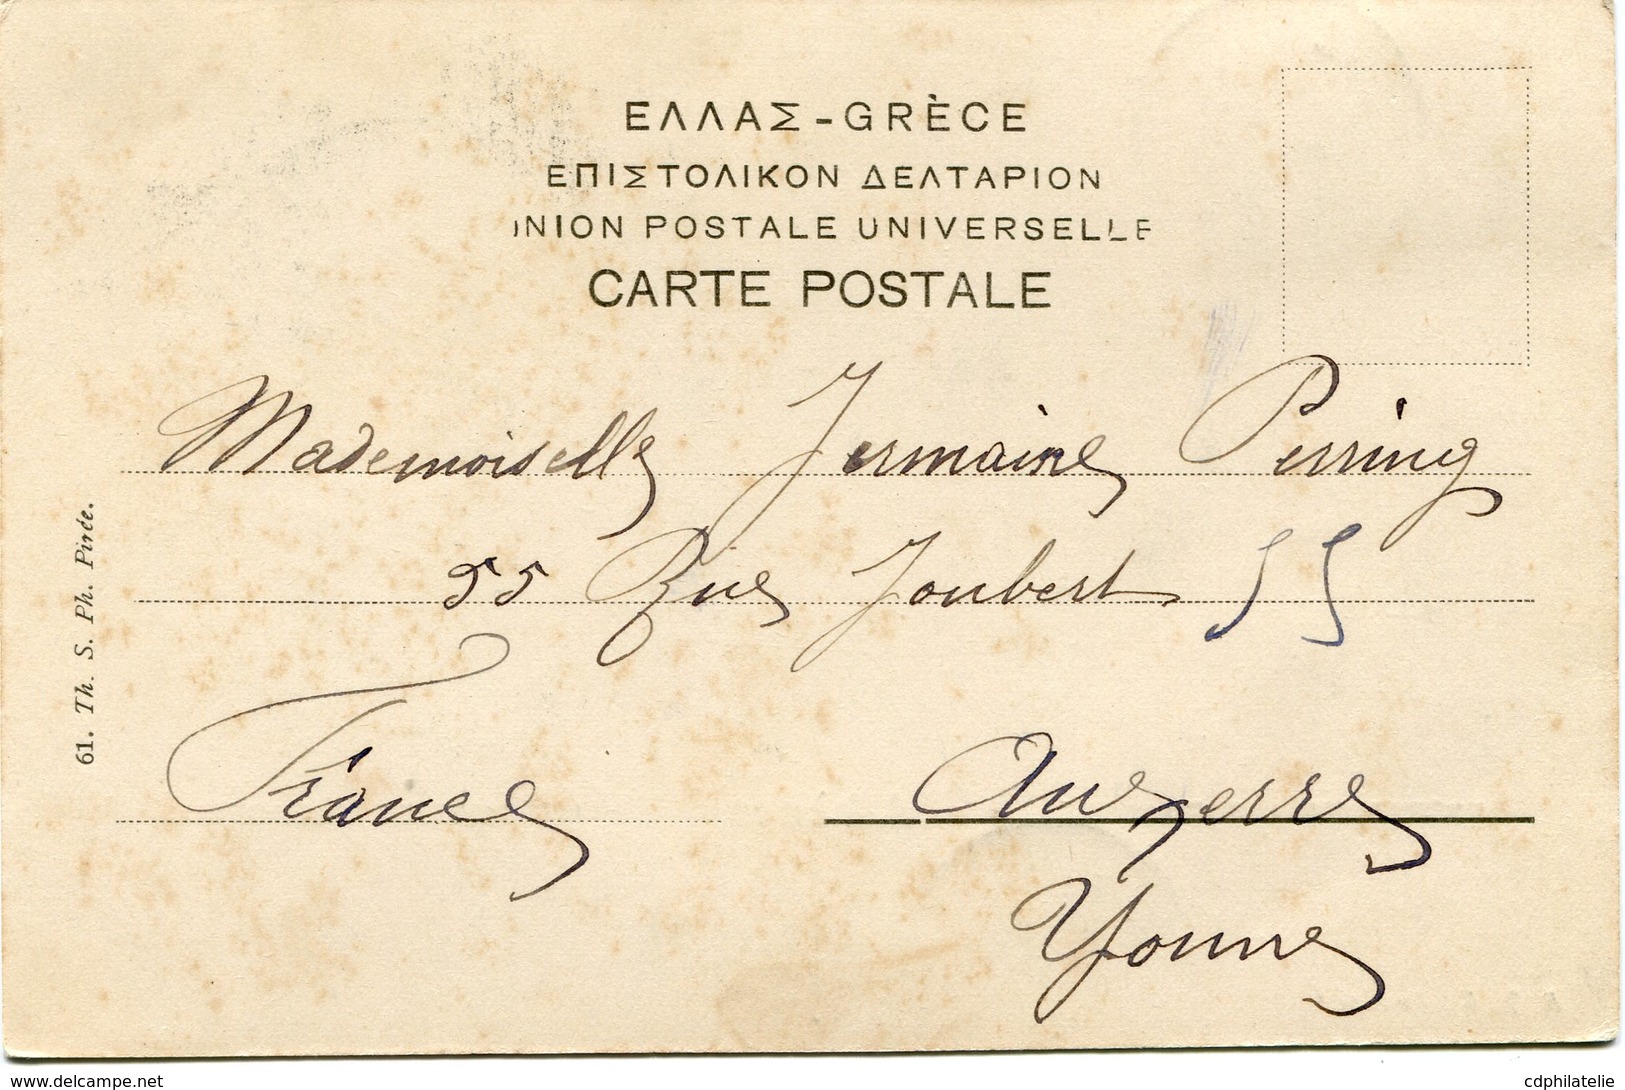 ΕΛΛΑΣ-GRÈCE
ΕΠΙΣΤΟΛΙΚΟΝ ΔΕΛΤΑΡΙΟΝ
UNION POSTALE UNIVERSELLE
CARTE POSTALE
Mademoiselle Jermaine Perring
55 Rue Joubert 55
France
Auxerre
Yonne
61. Th. S. Ph. Pirée.
www.delcampe.net
cdphilatelie